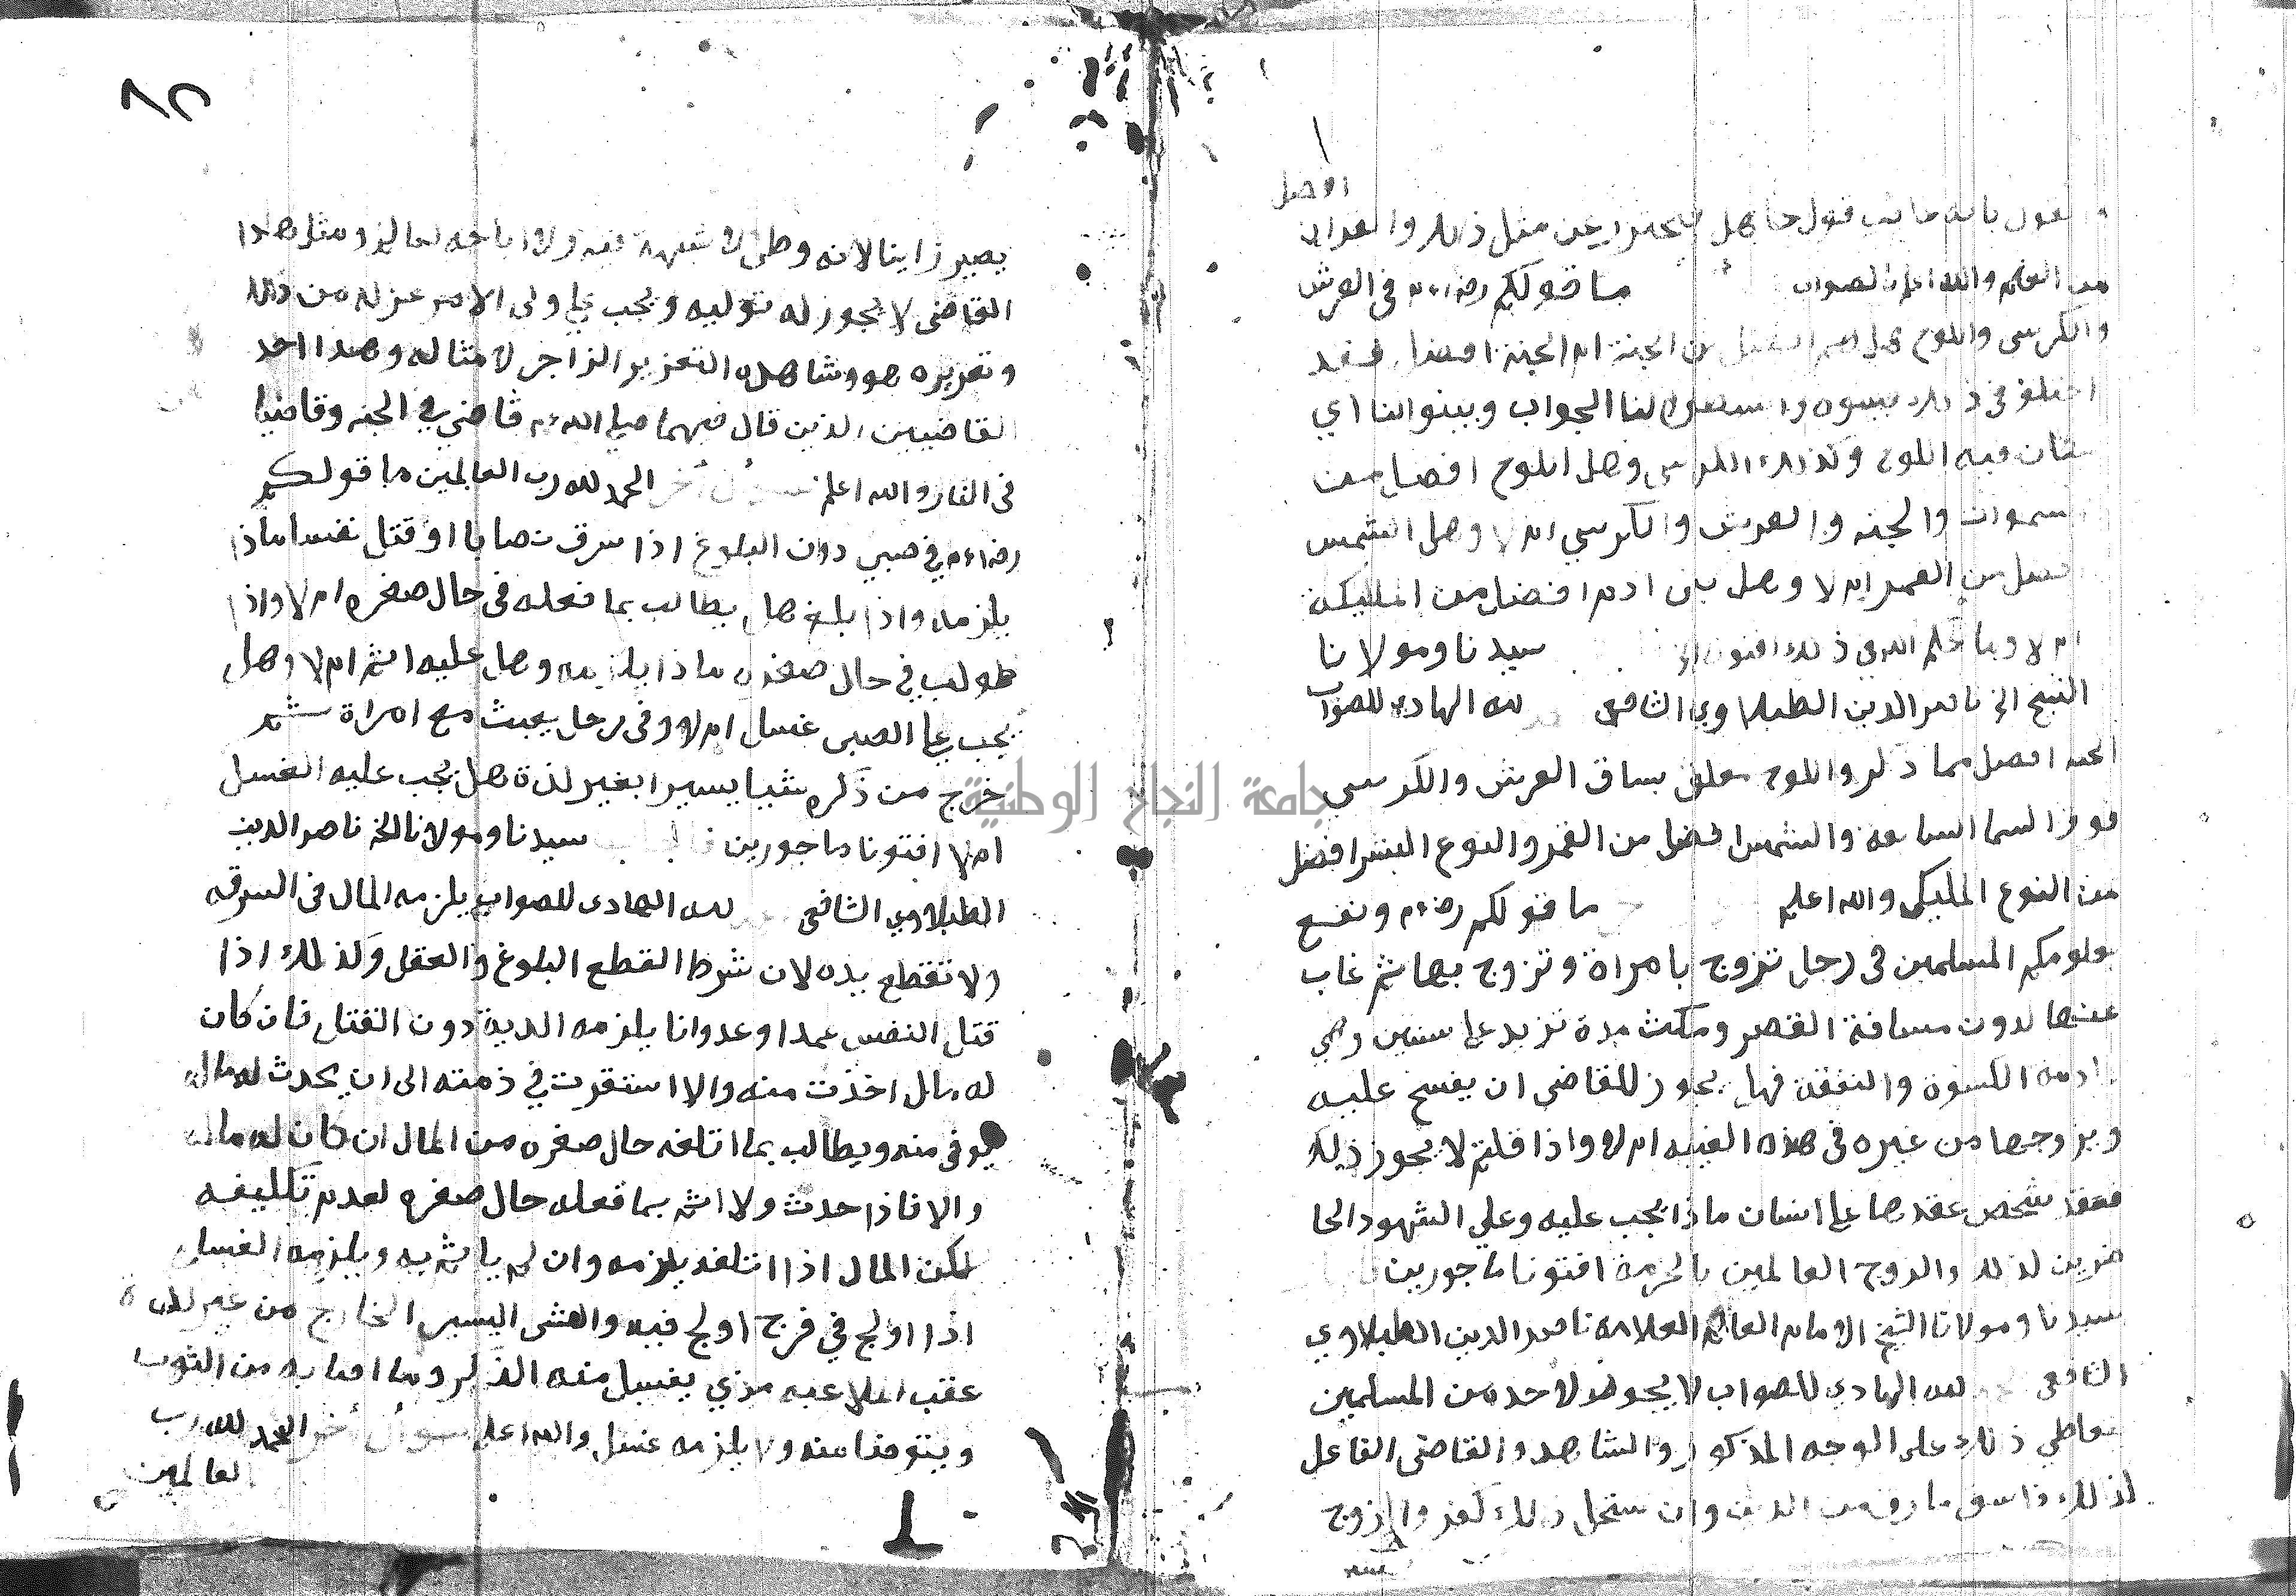 افضل
والقول بانه مايت قول جاهل فليحذر عن مثل ذلك والقران
من العلم والله اعلم بالصواب ما قولكم رضى الله عنكم فى العرش
والكرسى واللوح هل هم افضل من الجنة ام الجنة افضل فقد
اختلف فى ذلك لنا الجواب وبينوا لنا اي
مكان فيه اللوح وكذلك الكرسى وهل اللوح افضل من
السموات والجنه والعرش والكرسي ام لا وهل الشمس
افضل من القمر ام لا وهل بنى ادم افضل من المليكة
ام لا وما حكم الله فى ذلك افتونا سيدنا ومولانا
الشيخ ناصر الدين الطبلاوي الشافعى لله الهادى للصواب
الجنه افضل مما ذكر واللوح معلق بساق العرش والكرسي
فوق السما السابعه والشمس افضل من القمر والنوع البشر افضل
من النوع المليكى والله اعلم ما قولكم رضى الله عنكم ونفع
بعلومكم المسلمين فى رجل تزوج بامراة وتزوج بها ثم غاب
عنها لدون مسافة القصر ومكث مدة تزيد على سنين وهي
الكسوة والنفقة فهل يجوز للقاضى ان يفسخ عليه
ويزوجها من غيره فى هذه الغيبه ام لا واذا قلتم لا يجوز ذلك
فعقد شخص عقدها على انسان ماذا يجب عليه وعلي الشهود الحا
ضرين لذلك والزوج العالمين بالحرمة افتونا ماجورين
سيدنا ومولانا الشيخ الامام العالم العلامة ناصر الدين الطبلاوي
الشافعى لله الهادي للصواب لا يجوز لاحد من المسلمين
تعاطي ذلك على الوجه المذكور والشاهد والقاضى الفاعل
لذلك فاسق مارق من الدين وان ستحل ذلك كفر والزوج
يصير زانيا لانه وطئ لا شبهة فيه ولا اباحه لعالم ومثل هذا
القاضى لا يجوز له توليه ويجب على ولى الامر عزله من ذلك
وتعزيره هو وشاهده التعزير الزاجر لامثاله وهذا احد
القاضيين الذين قال فيهما صلى الله عليه وسلم قاضي في الجنه وقاضيا
فى النار والله اعلم سوال أخر الحمد لله رب العالمين ما قولكم
رضى الله عنكم في صبي دون البلوغ اذا سرق نصابا او قتل نفسا ماذا
يلزمه واذا بلغ هل يطالب بما فعله فى حال صغره ام لا واذا
طولب في حال صغره ماذا يلزمه وهل عليه اثم ام لا وهل
يجب على الصبى غسل ام لا وفى رجل يعبث مع امراة ثم
خرج من ذكره شيا يسيرا بغير لذة هل يجب عليه الغسل
ام لا افتونا ماجورين سيدنا ومولانا الخ ناصر الدين
الطبلاوي الشافعى لله الهادى للصواب يلزمه المال فى السرقه
ولا تقطع يده لان شرط القطع البلوغ والعقل وكذلك اذا
قتل النفس عمدا وعدوانا يلزمه الدية دون القتل فان كان
له مال اخذت منه والا استقرت في ذمته الى ان يحدث له مال
يوفى منه ويطالب بما اتلفه حال صغره من المال ان كان له مال
والا فاذا حدث ولا اثم بما فعله حال صغره لعدم تكليفه
لكن المال اذا اتلفه يلزمه وان لم ياثم به ويلزمه الغسل
اذا اولج في فرج او لج فيه والشى اليسير الخارج من غير لذة
عقب الملاعبه مذي يغسل منه الذكر وما اصابه من الثوب
ويتوضا منه ولا يلزمه غسل والله اعلم سوال أخر الحمد لله رب
العالمين
جامعة النجاح الوطنية